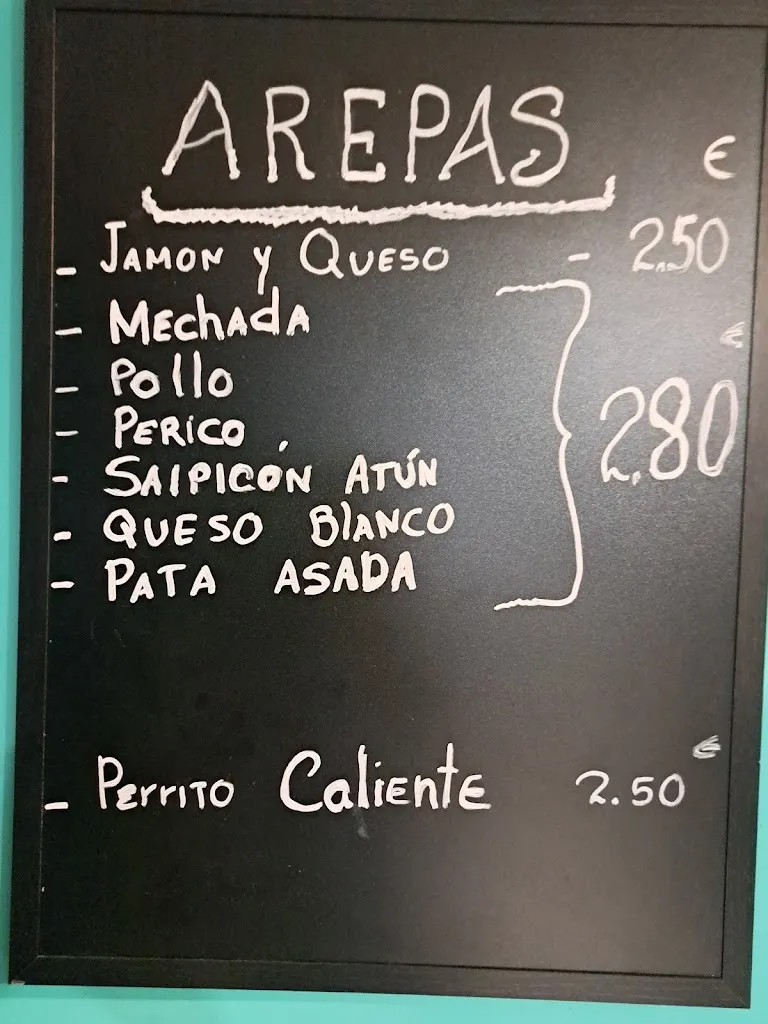 AREPAS €
- JAMON y QUESO - 2.50
- MEchAdA
- Pollo
- PERICO
- SAlPICÓN ATÚN
- QUESO BlANCO
- PATA ASADA
€
2.80
€
- PErrITO CaliENtE 2.50